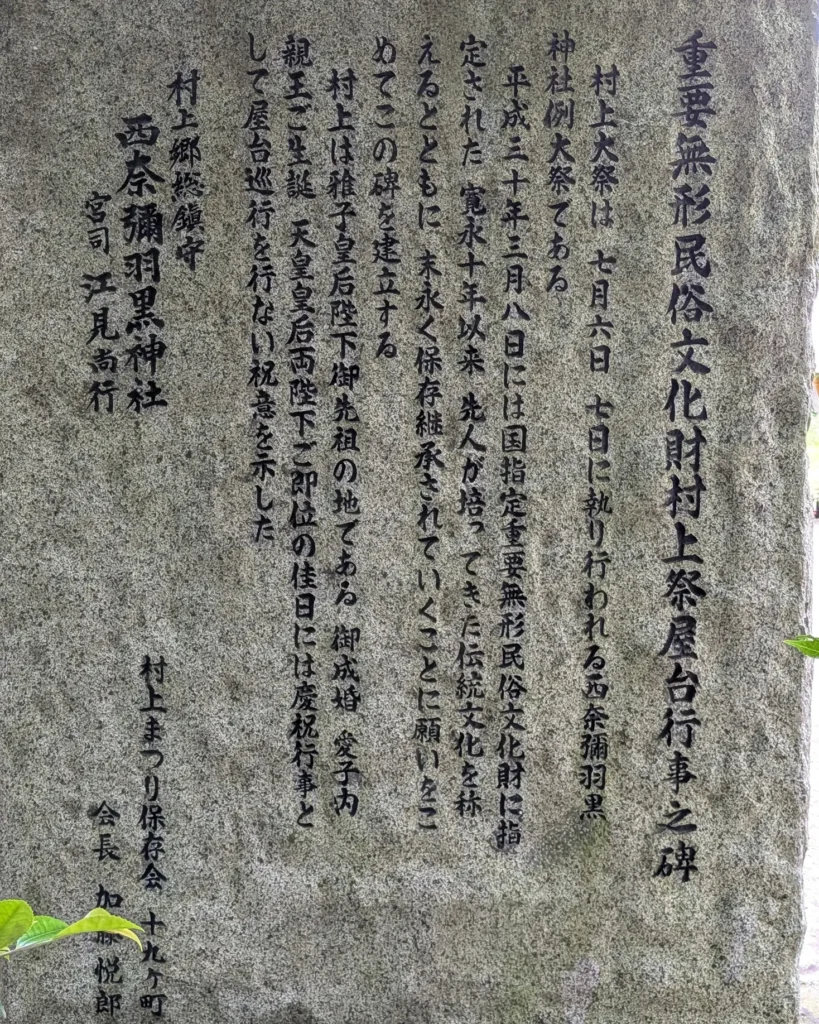 重要無形民俗文化財村上祭屋台行事之碑
村上大祭は 七月六日 七日に執り行われる西奈彌羽黒
神社例大祭である
平成三十年三月八日には国指定重要無形民俗文化財に指
定された 寛永十年以来 先人が培ってきた伝統文化を称
えるとともに 末永く保存継承されていくことに願いをこ
めてこの碑を建立する
村上は雅子皇后陛下御先祖の地である 御成婚 愛子内
親王ご生誕 天皇皇后両陛下ご即位の佳日には慶祝行事と
して屋台巡行を行ない祝意を示した
村上郷総鎮守
西奈彌羽黒神社
宮司 江見尚行
村上まつり保存会 十九ヶ町
会長 加藤悦郎